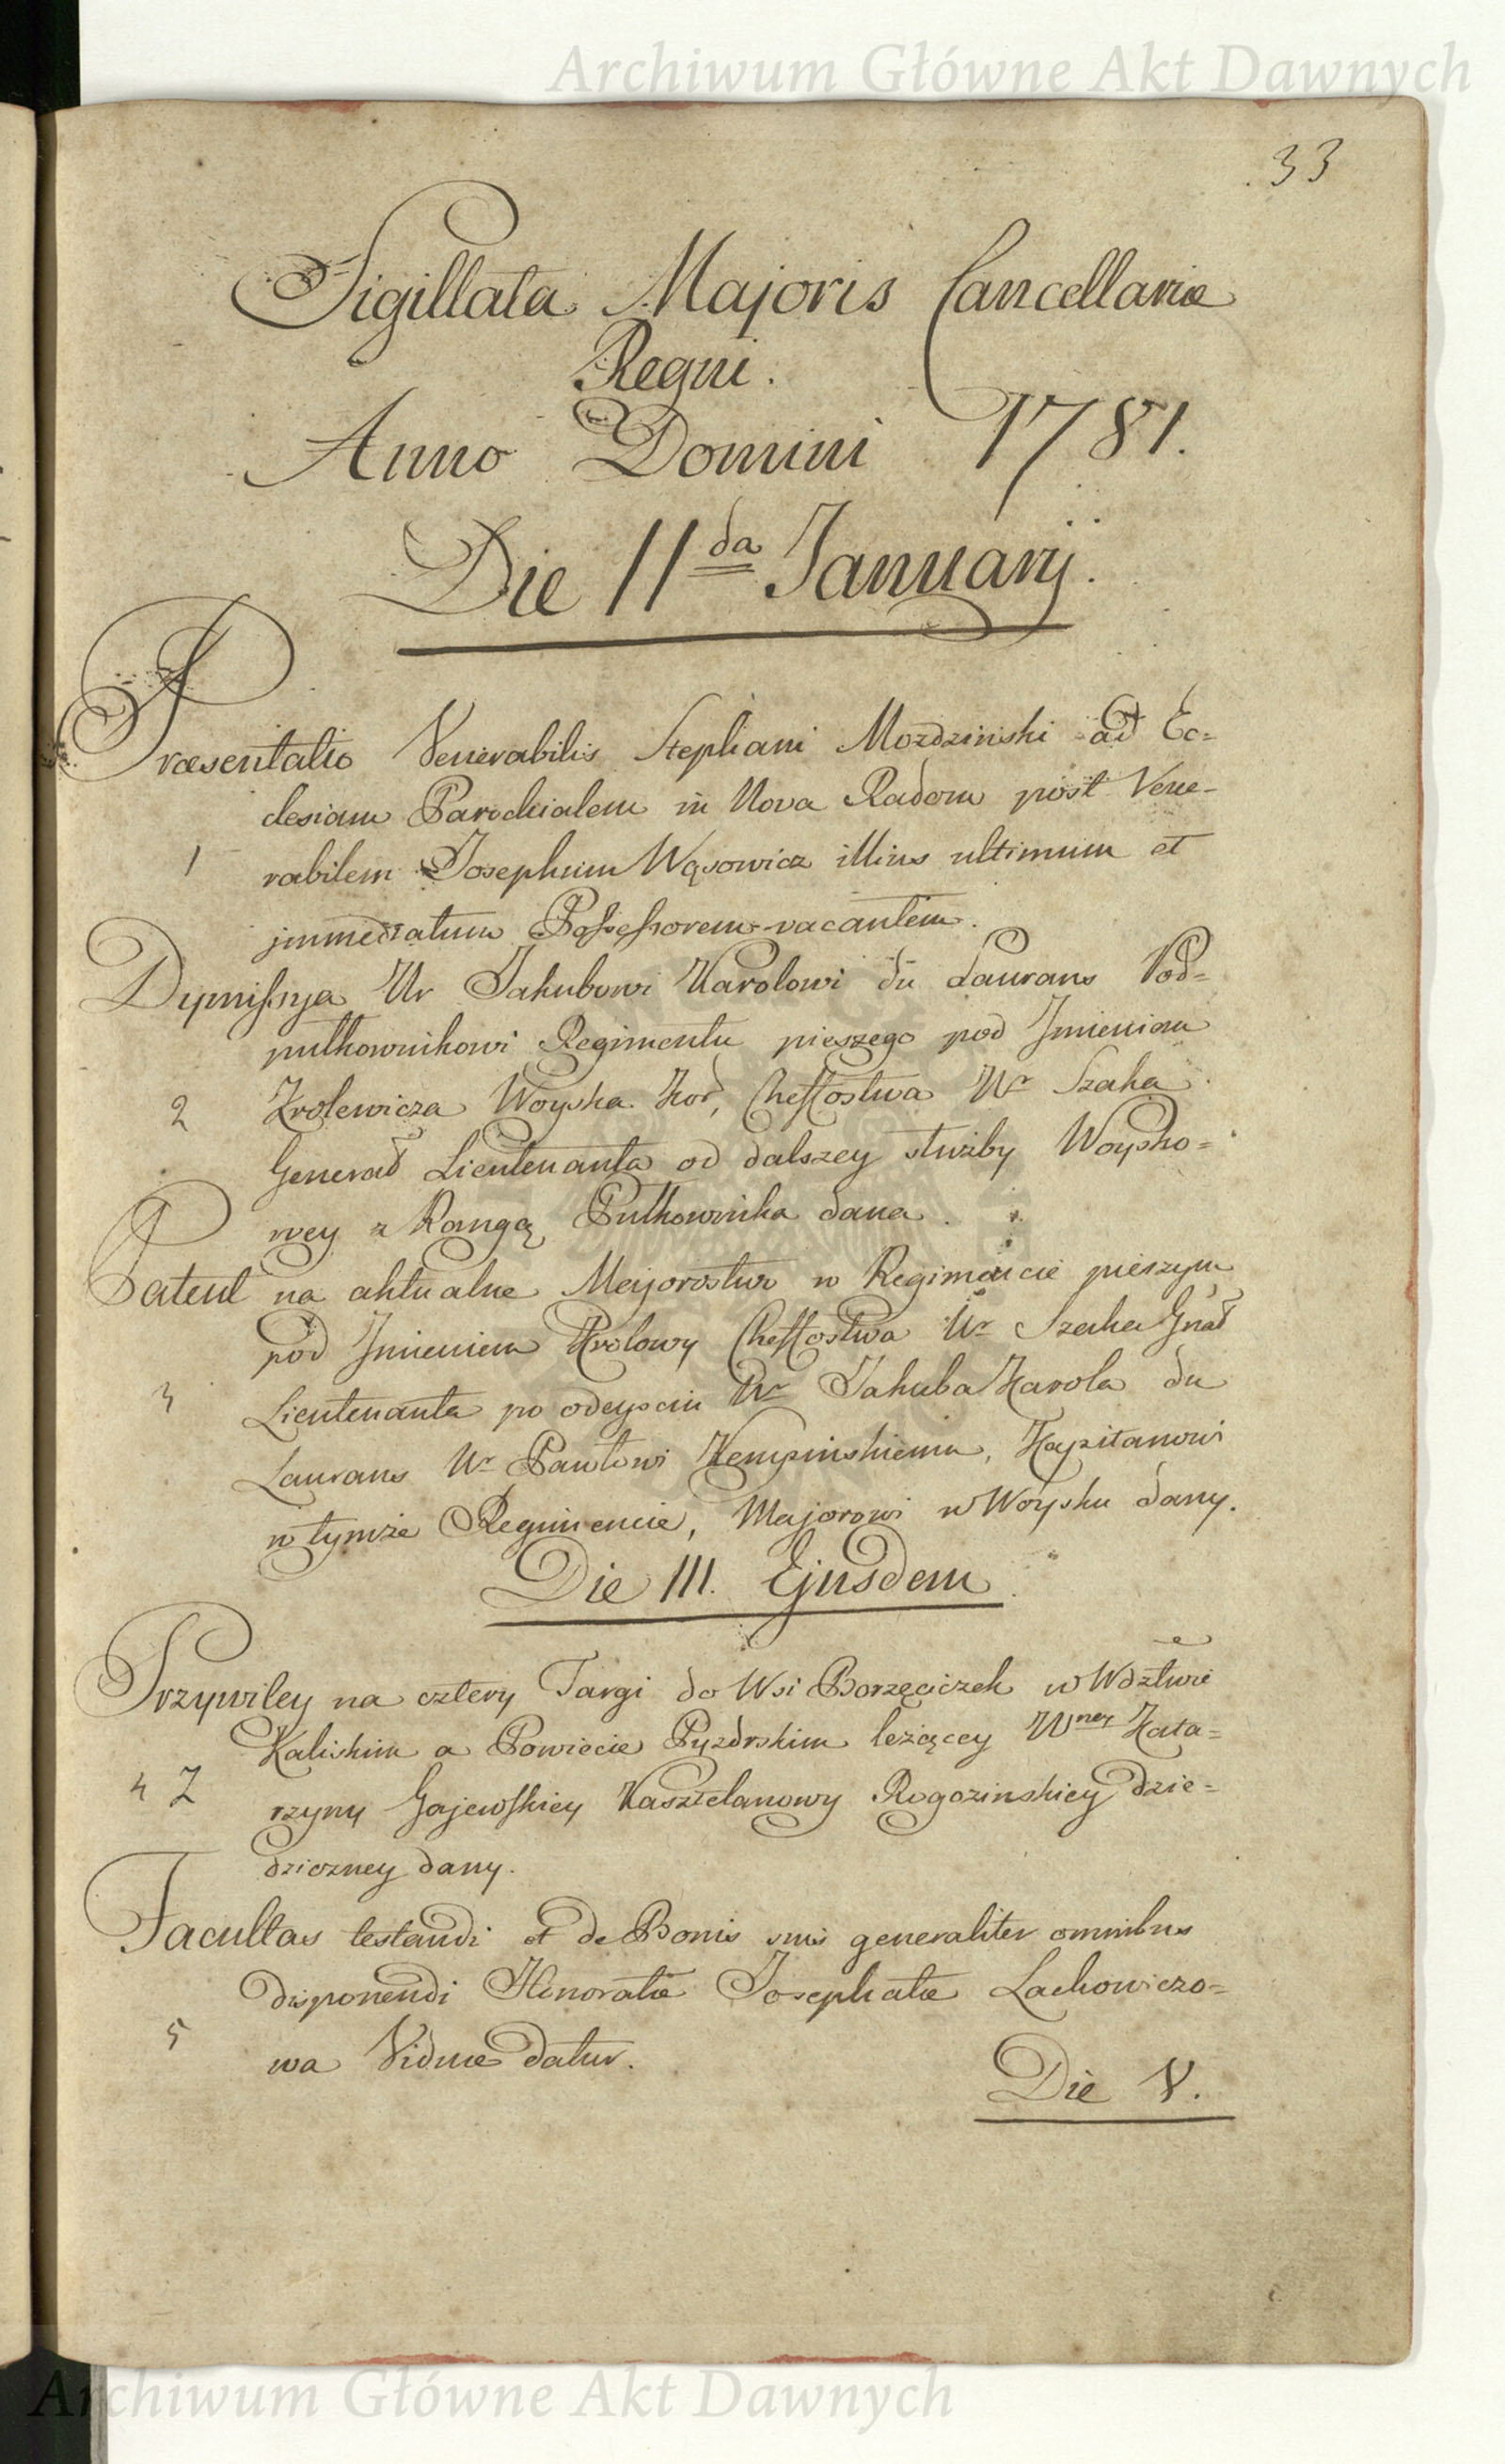 Archiwum Główne Akt Dawnych
33
Sigillata Majoris Cancellariæ
Regni.
Anno Domini 1781.
Die II da Januarij.
Præsentatio Venerabilis Stephani Mozdzinski ad Ec=
clesiam Parochialem in Nova Radom post Vene-
1 rabilem Josephum Wąsowicz illius ultimum et
jmmediatum Possessorem vacantem.
Dymissya Ur Jakubowi Karolowi du Laurans Pod=
pułkownikowi Regimentu pieszego pod Jmieniem
2 Krolewicza Woyska Kor, Cheffostwa Ur Szaka
Generał Lieutenanta od dalszey służby Woysko=
wey z Rangą Pułkownika dana.
Patent na aktualne Majorostwo w Regimencie pieszym
pod Jmieniem Krolowy Cheffostwa Ur Szaka Gnał
3 Lieutenanta po odeysciu Ur Jakuba Karola du
Laurans Ur Pawłowi Kempinskiemu, Kapitanowi
w tymże Regimencie, Majorowi w Woysku dany.
Die III. Ejusdem
Przywiley na cztery Targi do Wsi Borzęciczek w Wdztwie
Kaliskim a Powiecie Pyzdrskim leżącey Wney Kata=
4 Z rzyny Gajewskiey Kasztelanowy Rogozinskiey dzie=
dziczney dany.
Facultas testandi et de Bonis suis generaliter omnibus
disponendi Honoratæ Josephatæ Lachowiczo=
5 wa Viduæ datur.
Die V.
Archiwum Główne Akt Dawnych